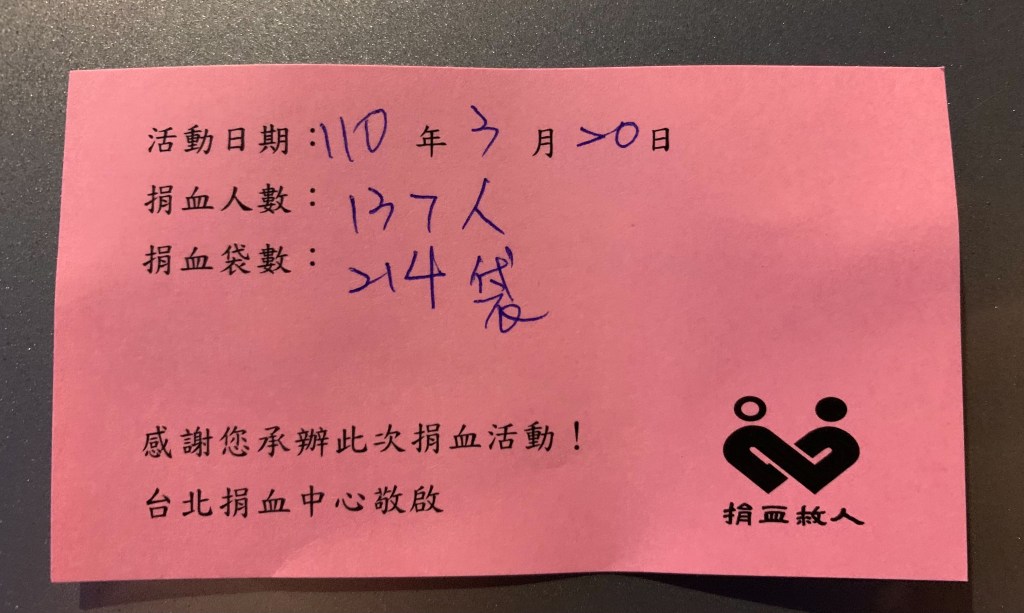 活動日期：110 年 3 月 20 日
捐血人數： 137人
捐血袋數： 214袋
感謝您承辦此次捐血活動！
台北捐血中心敬啟
捐血救人